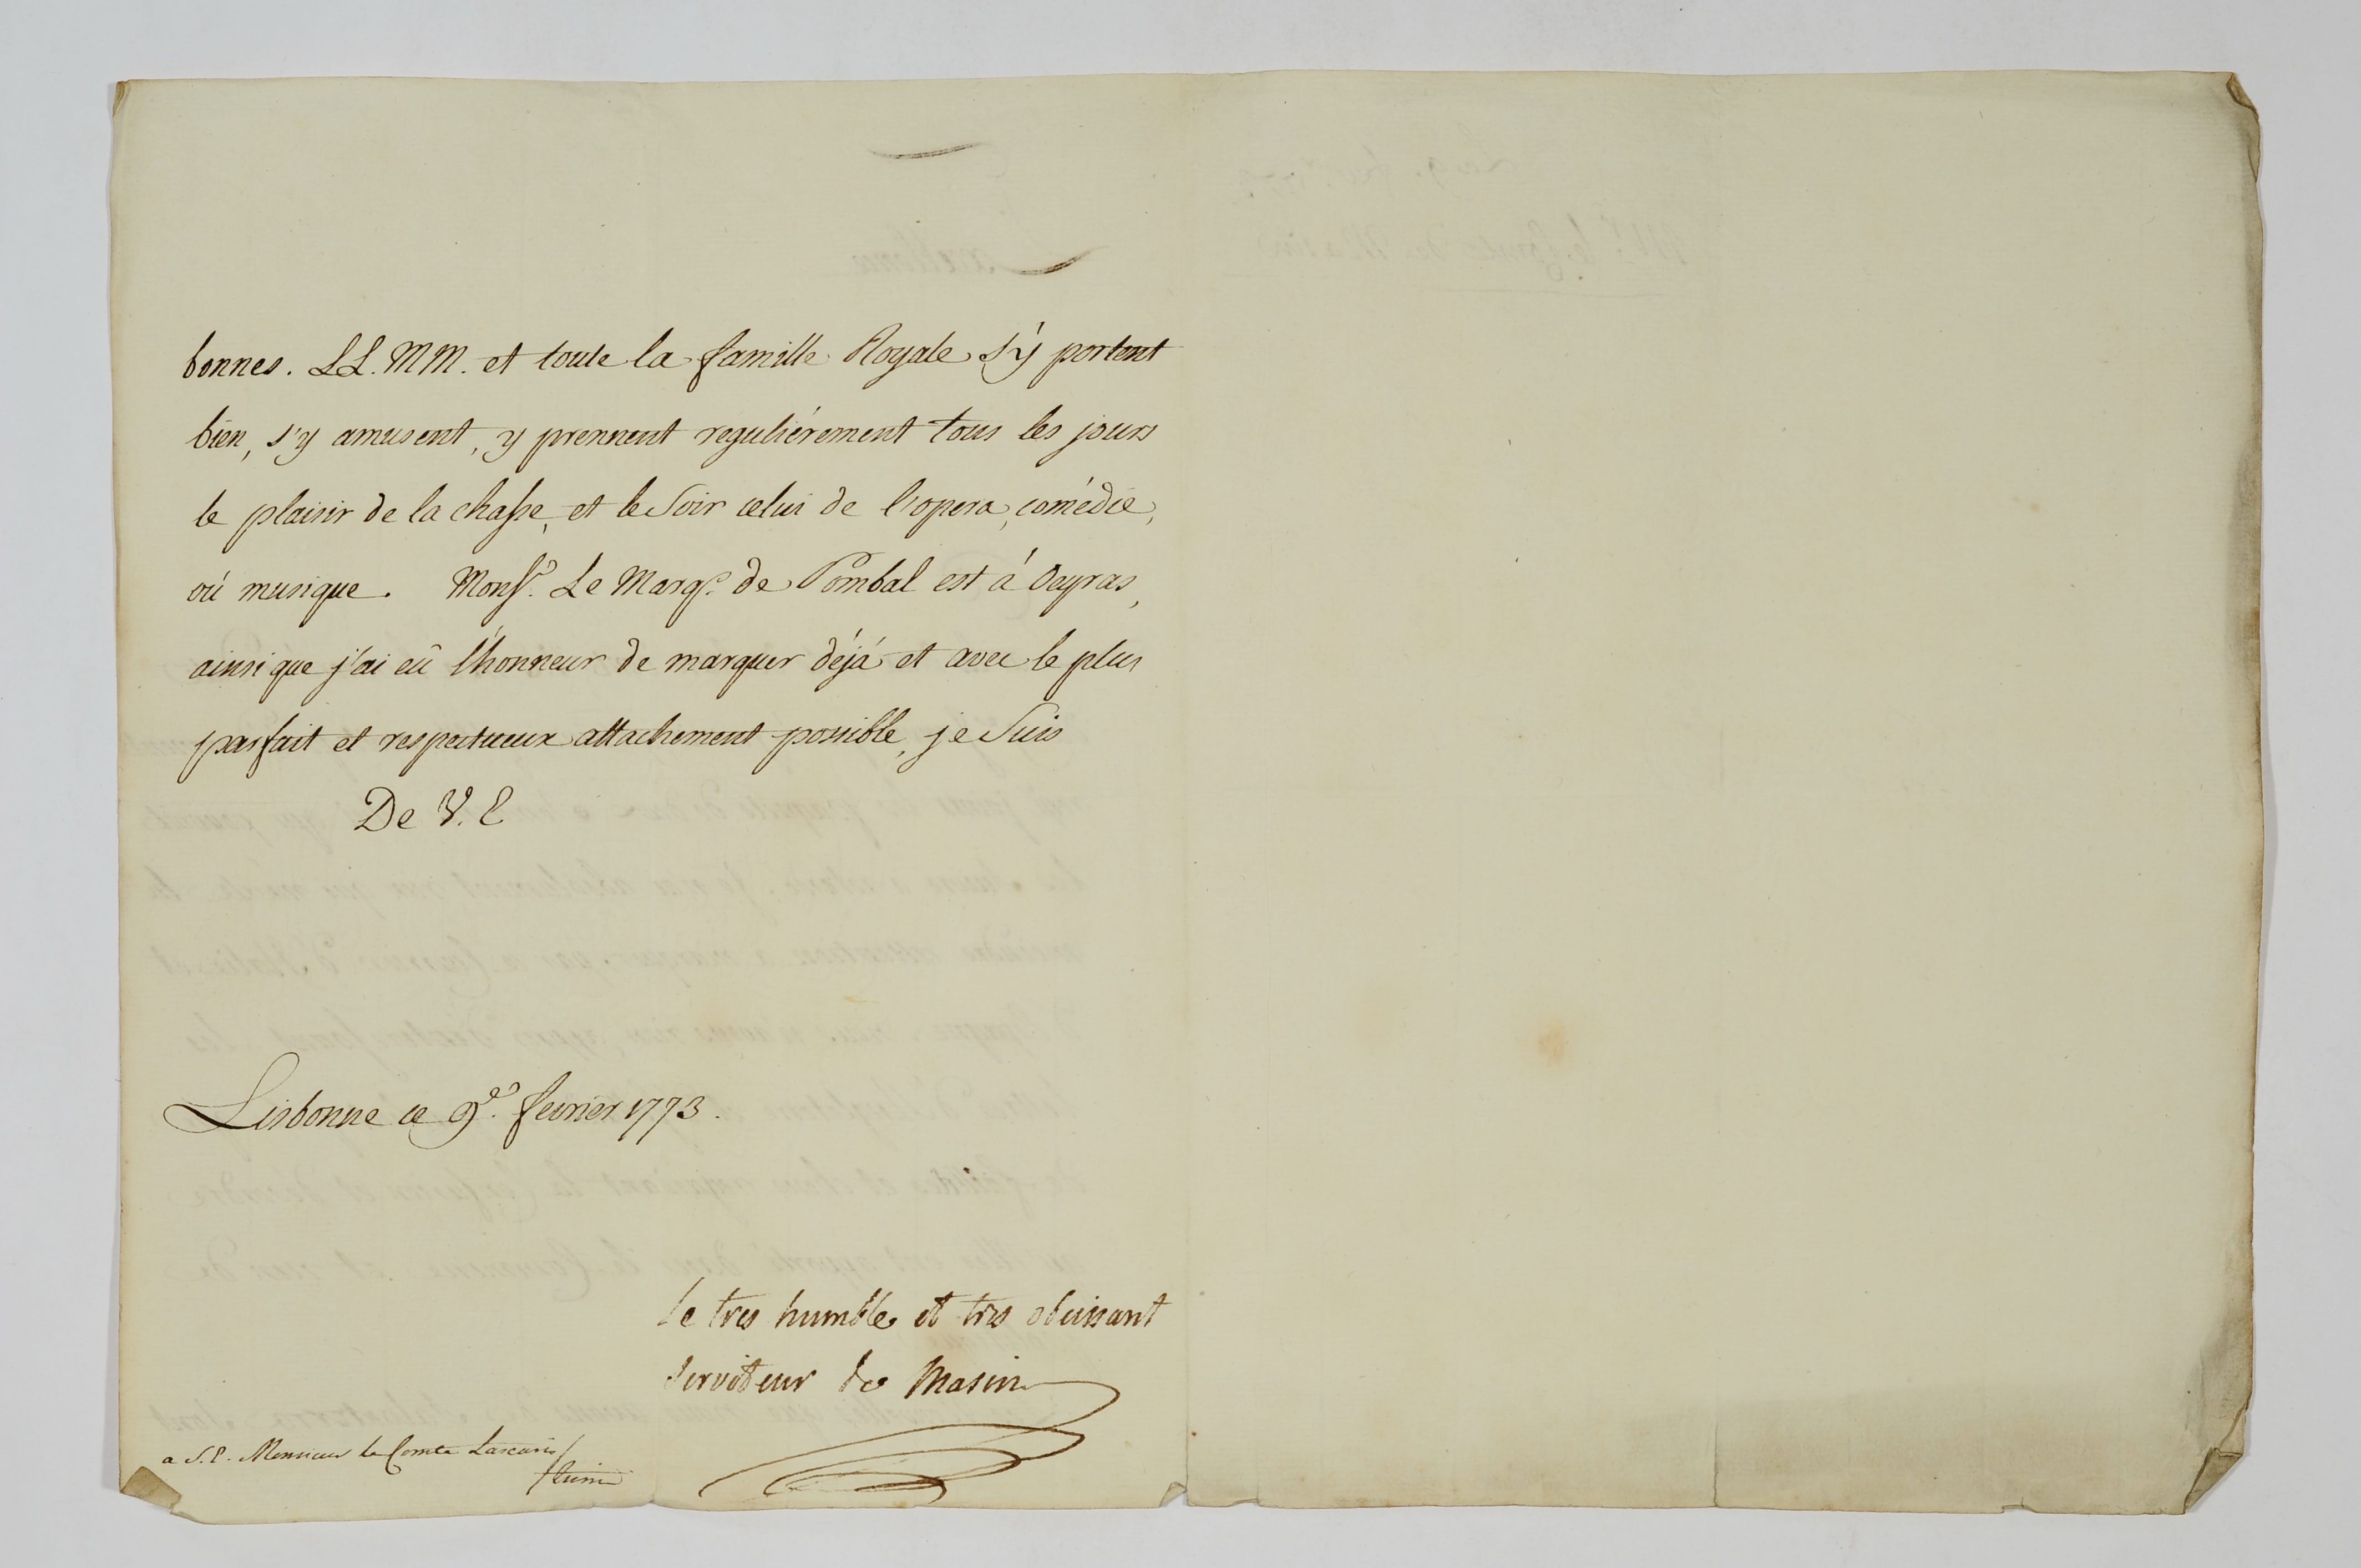 bonnes. LL. MM. et toute la famille Royale s'y portent
bien, s'y amusent, y prennent reguliérement tous les jours
le plaisir de la chasse, et le soir celui de l'opera, comédie,
où musique. Mons.r Le Marq.s de Pombal est á Oeyras,
ainsi que j'ai eû l'honneur de marquer déjá et avec le plus
parfait et respectueux attachement possible, je suis
De V. E
Lisbonne ce 9.e fevrier 1773.
le tres humble et tres obeissant
serviteur de Masin
a S. E. Monsieur le Comte Lascaris